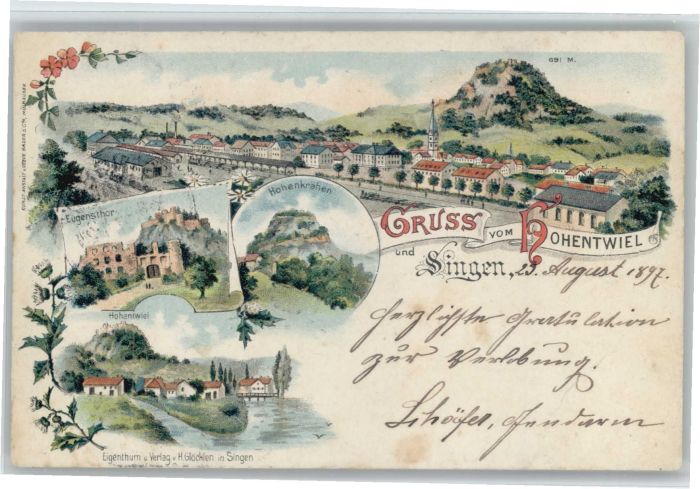 691 M.
Hohenkrähen
Eugensthor
GRUSS VOM HOHENTWIEL
und Singen, 23. August 1897.
Hohentwiel
Herzlichste Gratulation
zur Verlobung.
Schäfer, Gendarm
Eigenthum u. Verlag v. H. Glöcklen in Singen